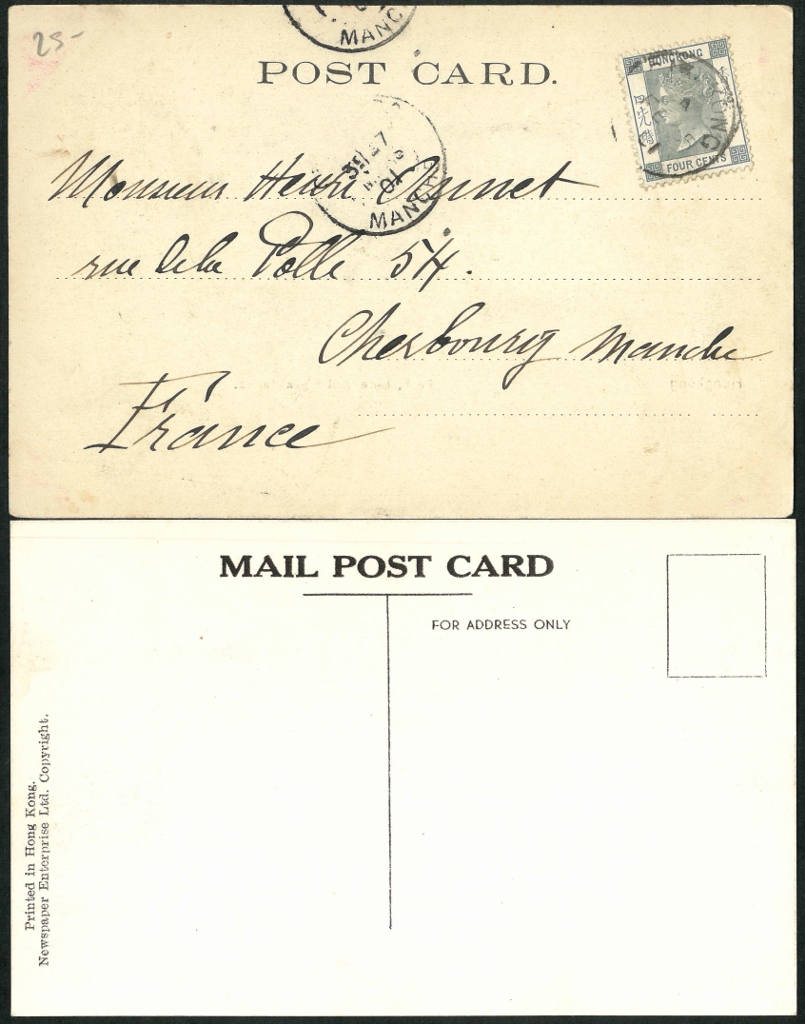 25-
MANC
POST CARD.
HONGKONG
四先時
FOUR CENTS
27
01
MANCHE
Monsieur Henri
rue de la Polle 54.
Cherbourg Manche
France
MAIL POST CARD
FOR ADDRESS ONLY
Printed in Hong Kong.
Newspaper Enterprise Ltd. Copyright.